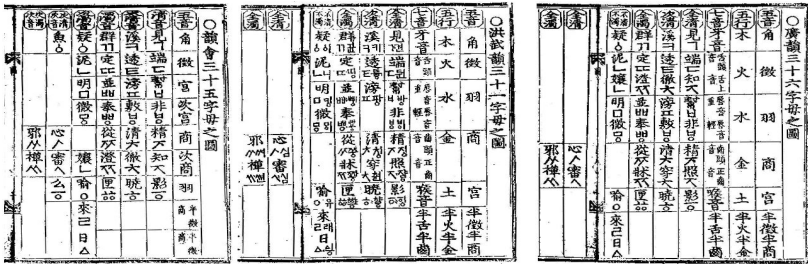 廣韻三十六字母之圖
五音 角 徵 羽 商 宮 半徵半商
五行 木 火 水 金 土 半火半金
七音 牙音 舌頭音 舌上音 脣音重 脣音輕 齒頭音 正齒音 喉音 半舌半齒
全清 見ㄱ 端ㄷ 知ㅈ 幫ㅂ 非ㅸ 精ᅎ 照ᅐ 影ㆆ
次清 溪ㅋ 透ㅌ 徹ㅊ 滂ㅍ 敷ㅸ 清ᅔ 穿ᅕ 曉ㅎ
全濁 群ㄲ 定ㄸ 澄ㅉ 並ㅃ 奉ㅹ 從ᅏ 牀ᅑ 匣ㆅ
不清不濁 疑ㆁ 泥ㄴ 孃ㄴ 明ㅁ 微ㅱ 喩ㅇ 來ㄹ 日ㅿ
全清 心ᄼ 審ᄾ
全濁 邪ᄽ 禪ᄿ
洪武韻三十一字母之圖
五音 角 徵 羽 商 宮 半徵半商
五行 木 火 水 金 土 半火半金
七音 牙音 舌頭音 脣音重 脣音輕 齒頭音 正齒音 喉音 半舌半齒
全清 見ㄱ 端ㄷ 幫ㅂ 非ㅸ 精ᅎ 照ᅐ 影ㆆ
次清 溪ㅋ 透ㅌ 滂ㅍ 清ᅔ 穿ᅕ 曉ㅎ
全濁 群ㄲ 定ㄸ 並ㅃ 奉ㅹ 從ᅏ 牀ᅑ 匣ㆅ
不清不濁 疑ㆁ 泥ㄴ 明ㅁ 微ㅱ 喩ㅇ유 來ㄹ래 日ㅿ
全清 心ᄼ심 審ᄾ심
全濁 邪ᄽ 禪ᄿ
韻會三十五字母之圖
五音 角 徵 宮 次宮 商 次商 羽 半徵商 半徵商
清音 見ㄱ 端ㄷ 幫ㅂ 非ㅸ 精ᅎ 知ᅐ 影ㆆ
次清音 溪ㅋ 透ㅌ 滂ㅍ 敷ㅸ 清ᅔ 徹ᅕ 曉ㅎ
濁音 群ㄲ 定ㄸ 並ㅃ 奉ㅹ 從ᅏ 澄ᅑ 匣ㆅ
疑ㆁ 泥ㄴ 明ㅁ 微ㅱ 孃ㄴ 喩ㅇ 來ㄹ 日ㅿ
魚ㆁ
心ᄼ 審ᄾ 幺ㆆ
邪ᄽ 禪ᄿ